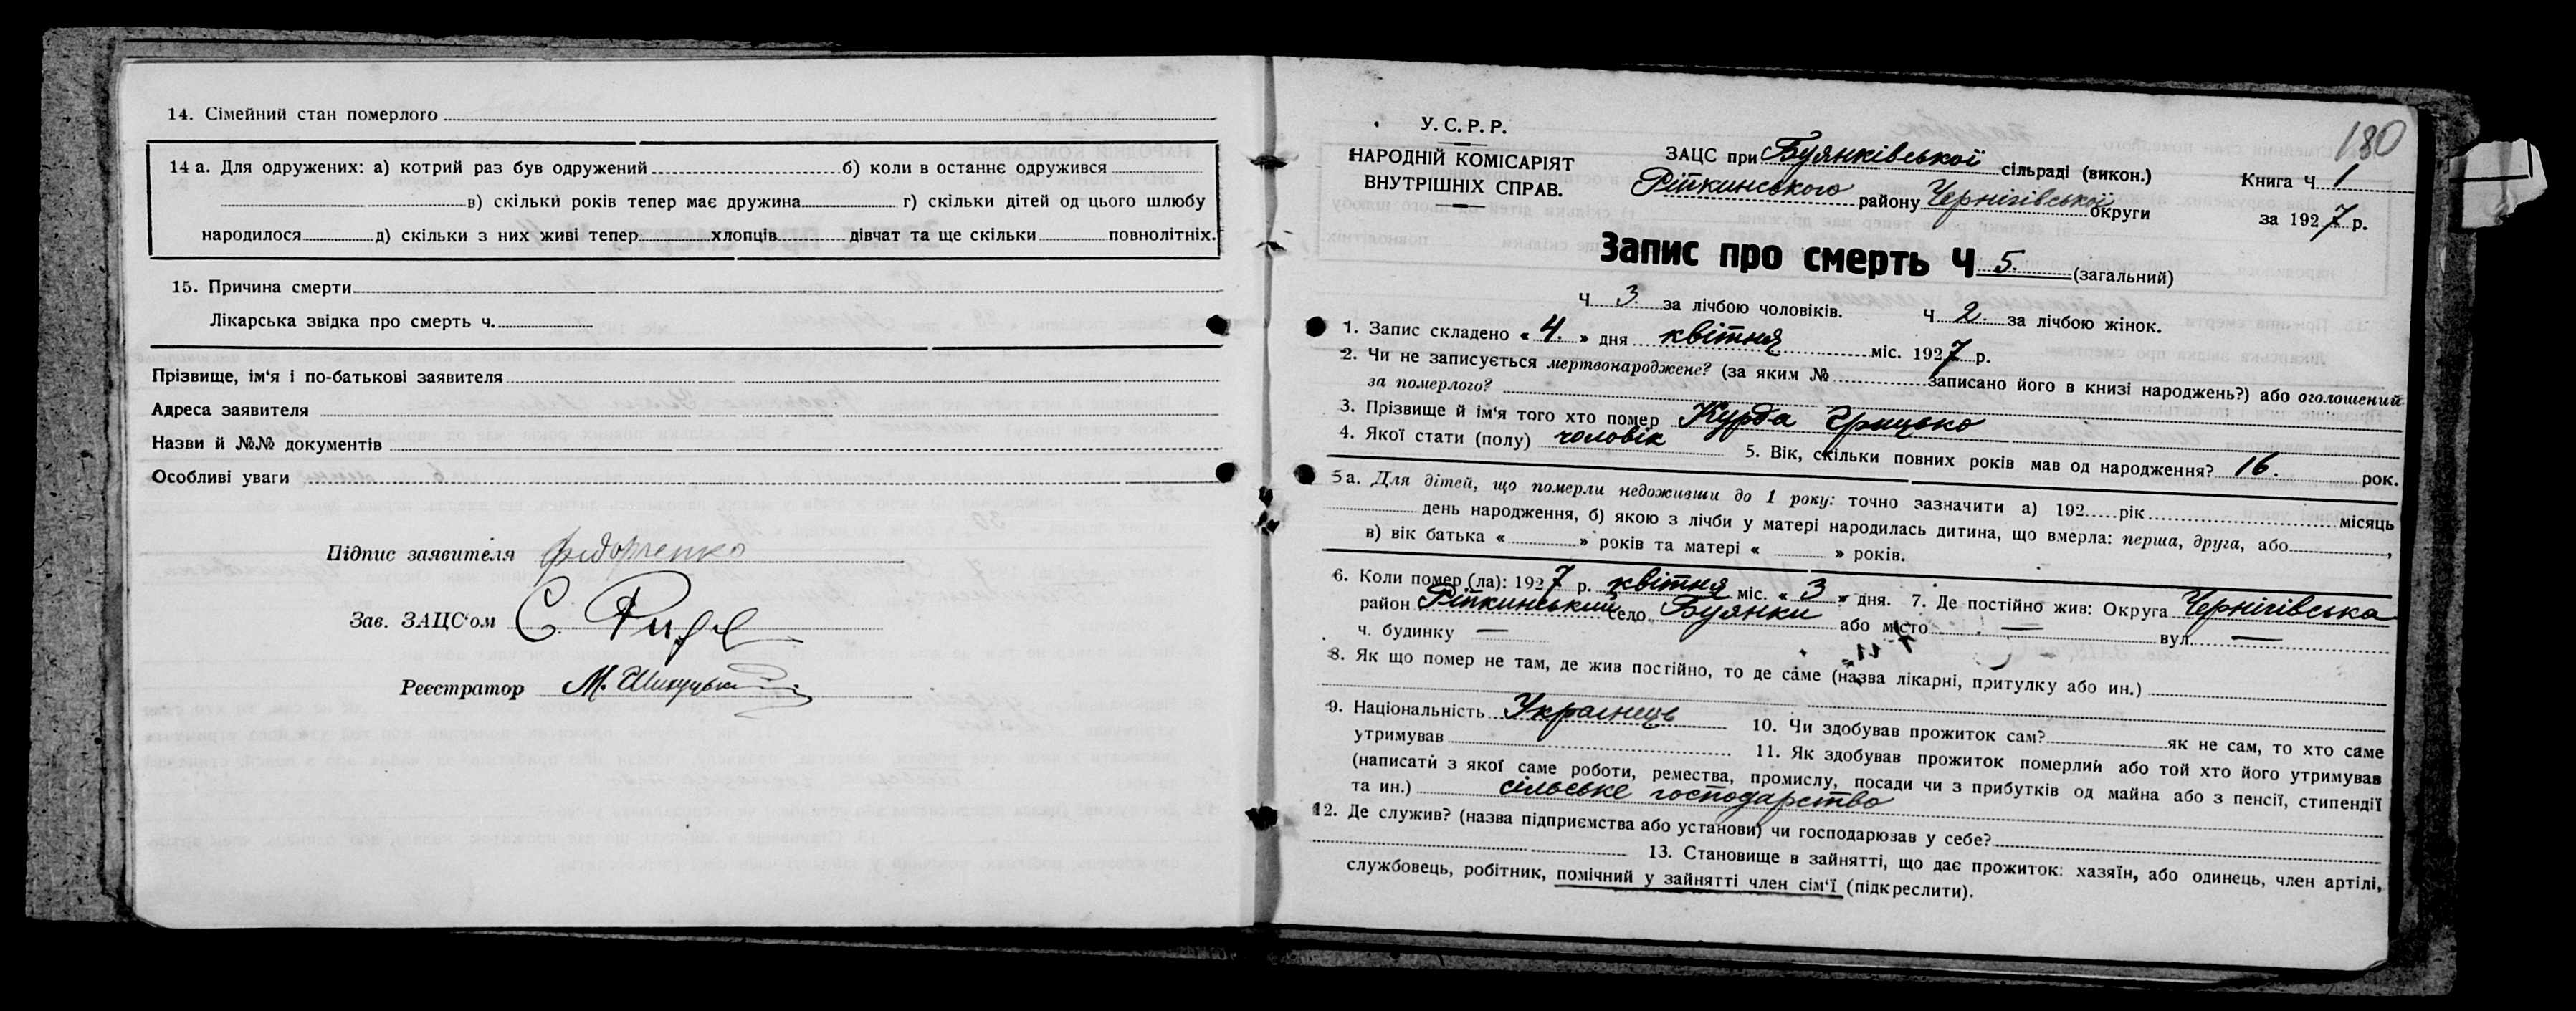 14. Сімейний стан померлого
14 а. Для одружених: а) котрий раз був одружений б) коли в останнє одружився
в) скільки років тепер має дружина г) скільки дітей од цього шлюбу
народилося д) скільки з них живі тепер хлопців дівчат та ще скільки повнолітніх.
15. Причина смерти
Лікарська звідка про смерть ч.
Прізвище, ім'я і по-батькові заявителя
Адреса заявителя
Назви й №№ документів
Особливі уваги
Підпис заявителя
Зав. ЗАЦС'ом С.
Реєстратор М.
180
У.С.Р.Р.
НАРОДНІЙ КОМІСАРІЯТ
ВНУТРІШНІХ СПРАВ.
ЗАЦС при Буянківської сільраді (викон.)
Ріпкинського району Чернігівської округи
Книга Ч 1
за 1927 р.
Запис про смерть Ч 5. (загальний)
Ч 3. за лічбою чоловіків. Ч 2. за лічбою жінок.
1. Запис складено « 4. » дня квітня міс. 1927 р.
2. Чи не записується мертвонароджене? (за яким № записано його в книзі народжень?) або оголошений
за померлого?
3. Прізвище й ім'я того хто помер Курда Грицько
4. Якої стати (полу) чоловік 5. Вік, скільки повних років мав од народження? 16. рок.
5 а. Для дітей, що померли недоживши до 1 року: точно зазначити а) 192 рік місяць
день народження, б) якою з лічби у матері народилась дитина, що вмерла: перша, друга, або ,
в) вік батька « » років та матері « » років.
6. Коли помер (ла): 1927 р. квітня міс. « 3 » дня. 7. Де постійно жив: Округа Чернігівська
район Ріпкинський село Буянки або місто — вул. —
ч. будинку —
8. Як що помер не там, де жив постійно, то де саме (назва лікарні, притулку або ин.)
9. Національність Українець 10. Чи здобував прожиток сам? як не сам, то хто саме
утримував 11. Як здобував прожиток померлий або той хто його утримував
(написати з якої саме роботи, ремества, промислу, посади чи з прибутків од майна або з пенсії, стипендії
та ин.) сільське господарство
12. Де служив? (назва підприємства або установи) чи господарюзав у себе?
13. Становище в зайнятті, що дає прожиток: хазяїн, або одинець, член артілі,
службовець, робітник, помічний у зайнятті член сім'ї (підкреслити).